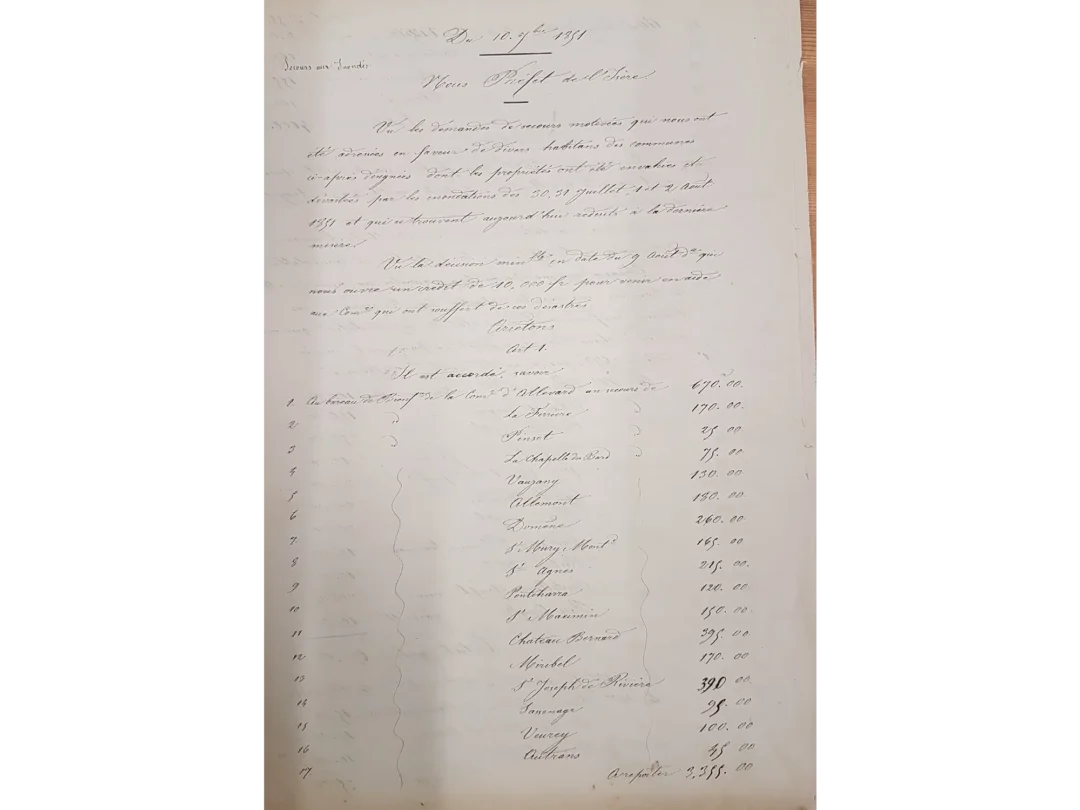 Du 10. 7bre 1851
Secours aux Inondés
Nous Préfet de l'Isère
Vu les demandes de secours motivées qui nous ont
été adressées en faveur de divers habitans des communes
ci-après désignées dont les propriétés ont été envahies et
dévastées par les inondations des 30, 31 Juillet, 1 et 2 Août
1851 et qui se trouvent aujourd'hui réduits à la dernière
misère.
Vu la décision minlle en date du 9 Août dr qui
nous ouvre un crédit de 10,000 fr pour venir en aide
aux Comes qui ont souffert de ces désastres
Arrêtons
Art. 1.
Il est accordé, savoir
1. Au bureau de Bienfce de la Come d'Allevard un secours de 670.00.
2 " La Ferrière " 170.00.
3 " Pinsot " 25 00
4 La Chapelle du Bard " 75. 00
5 Vaujany 130.00
6 Allemont 180.00
7. Domène 260.00
8 St Mury-Montd 165.00
9 Ste Agnès 215.00.
10 Pontcharra 120.00
11 St Maximin 150.00
12 Chateau Bernard 395.00
13 Miribel 170.00
14 St Joseph de Rivière 390 00
15 Sassenage 95.00
16 Veurey 100.00
17 Autrans 45 00
A reporter 3,355.00